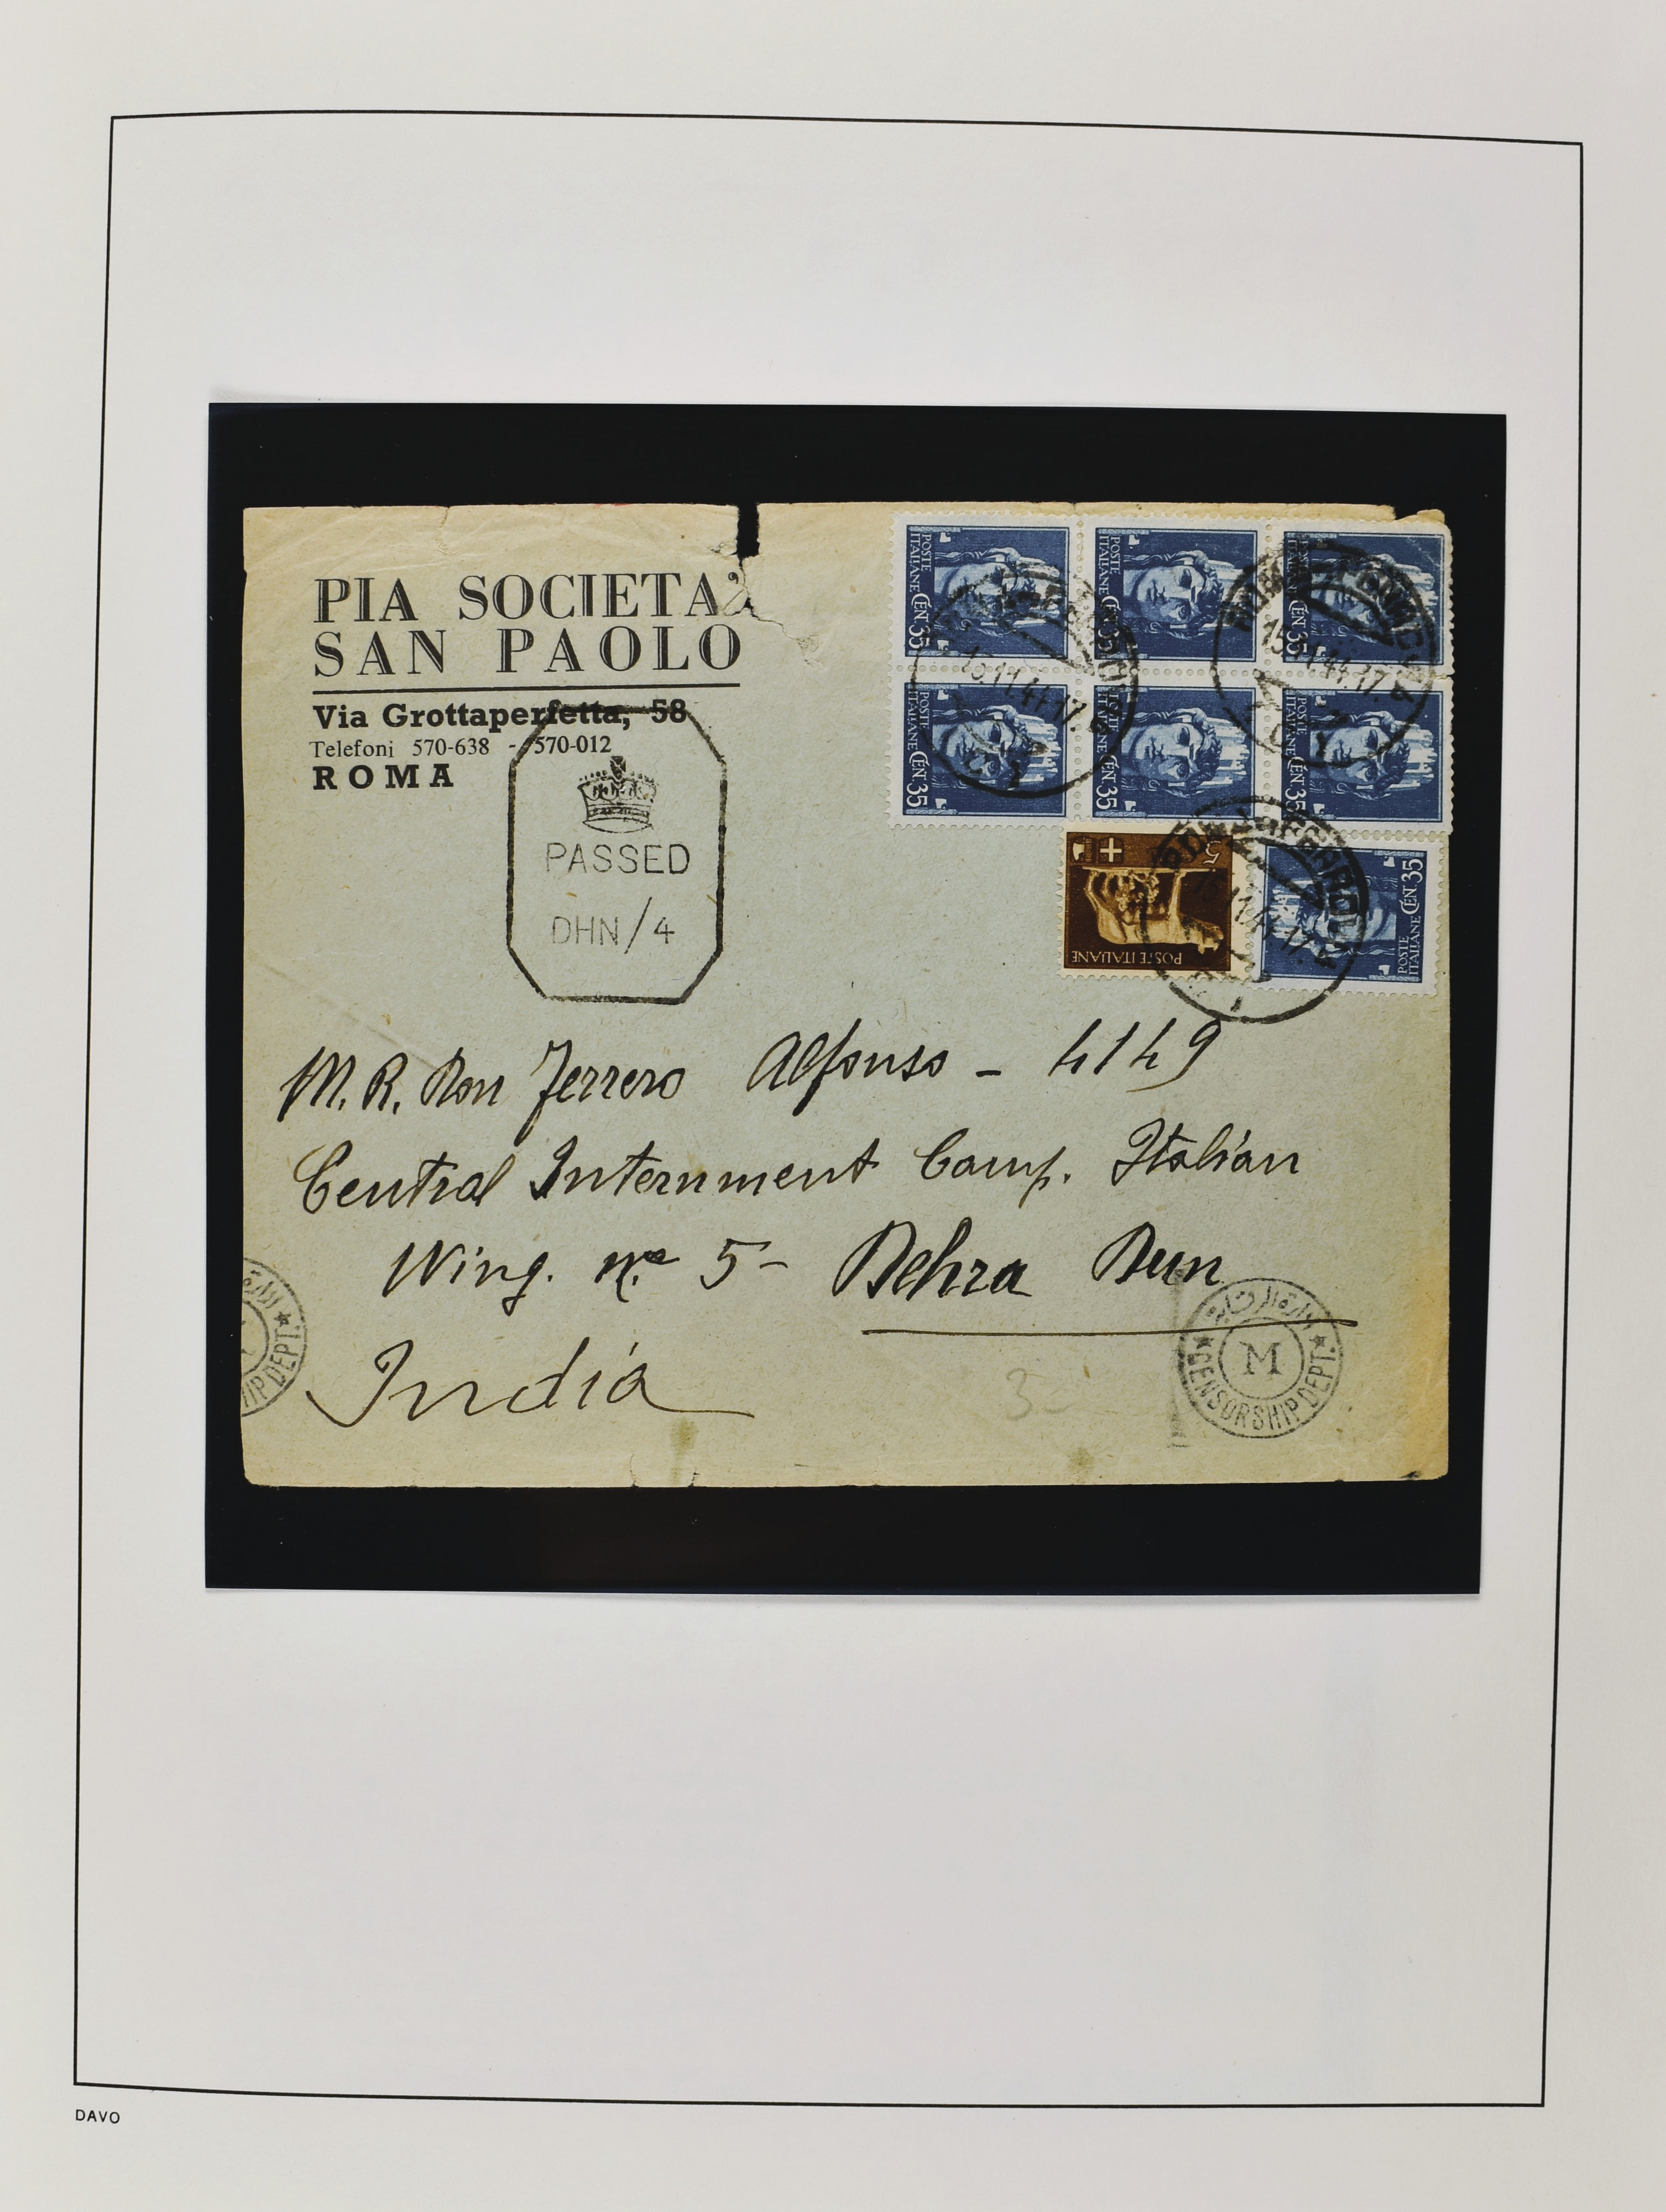 PIA SOCIETA'
SAN PAOLO
Via Grottaperfetta, 58
Telefoni 570-638 - 570-012
ROMA
PASSED
DHN/4
POSTE ITALIANE CEN. 35
POSTE ITALIANE CEN. 35
POSTE ITALIANE CEN. 35
POSTE ITALIANE CEN. 35
POSTE ITALIANE CEN. 35
POSTE ITALIANE CEN. 35
5
POSTE ITALIANE
POSTE ITALIANE CEN. 35
15.11.44.17
M. R. Don Ferrero Alfonso - 4149
Central Internment Camp. Italian
Wing. n.º 5 - Dehra Dun
India
M
CENSORSHIP DEPT.
DEPT.
3
DAVO